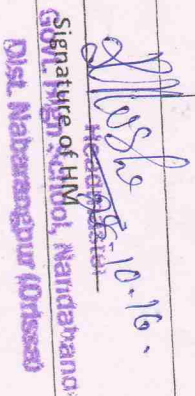 -10-16.
Headmaster
Signature of HM
Govt. High School, Nandahand
Dist. Nabarangpur (Odissa)